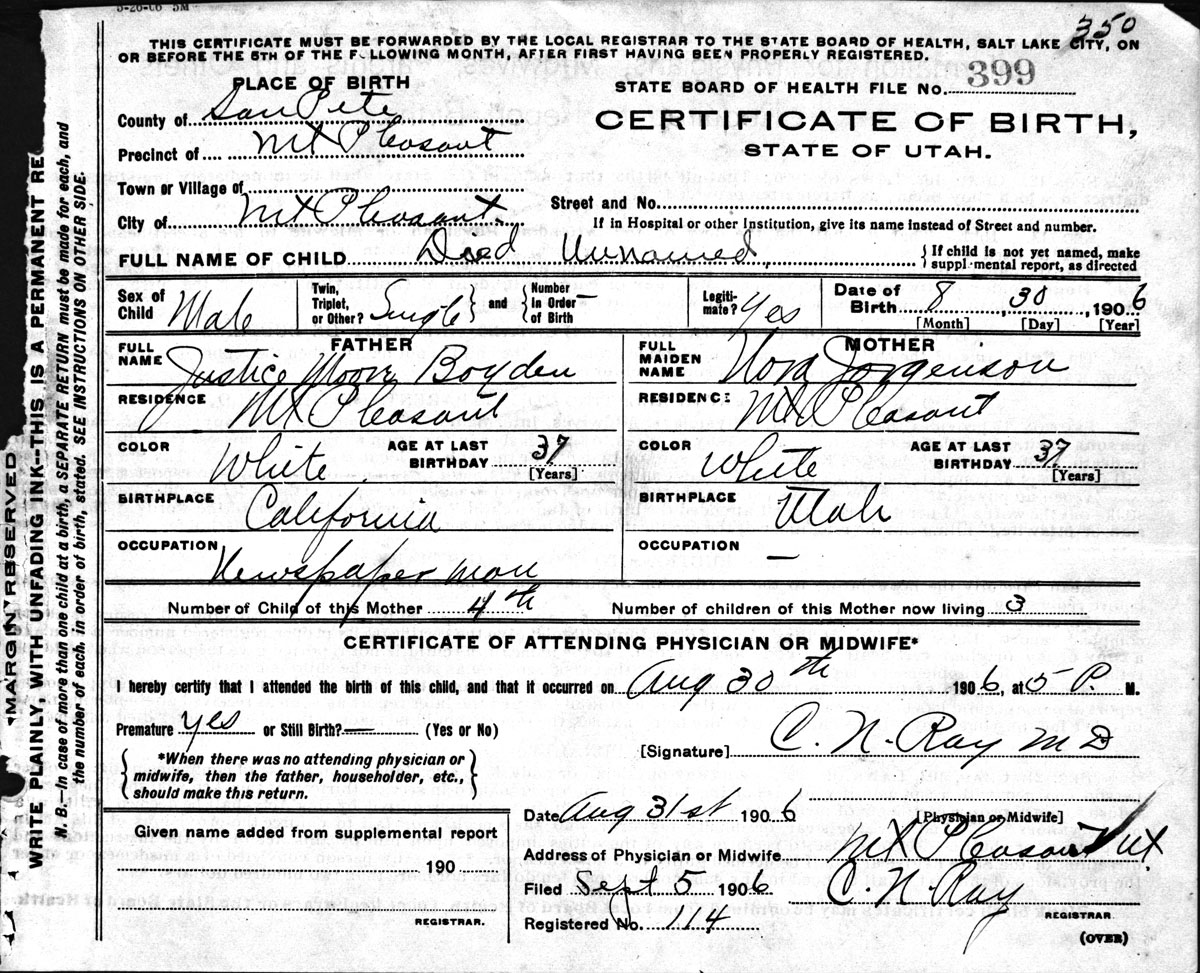 5-26-06 5M
350
THIS CERTIFICATE MUST BE FORWARDED BY THE LOCAL REGISTRAR TO THE STATE BOARD OF HEALTH, SALT LAKE CITY, ON
OR BEFORE THE 5TH OF THE FOLLOWING MONTH, AFTER FIRST HAVING BEEN PROPERLY REGISTERED.
PLACE OF BIRTH
STATE BOARD OF HEALTH FILE No. 399
County of San Pete
CERTIFICATE OF BIRTH,
Precinct of Mt Pleasant
STATE OF UTAH.
Town or Village of
Street and No.
City of Mt Pleasant
If in Hospital or other Institution, give its name instead of Street and number.
FULL NAME OF CHILD Died Unnamed, { If child is not yet named, make supplemental report, as directed
Sex of Child Male
Twin, Triplet, or Other? Single } and { Number In Order of Birth –
Legitimate? Yes
Date of Birth 8, 30, 1906
[Month] [Day] [Year]
FATHER
FULL NAME Justice Moore Boyden
RESIDENCE Mt Pleasant
COLOR White AGE AT LAST BIRTHDAY 37 [Years]
BIRTHPLACE California
OCCUPATION Newspaper man
MOTHER
FULL MAIDEN NAME Nora Jorgenson
RESIDENCE Mt Pleasant
COLOR White AGE AT LAST BIRTHDAY 37 [Years]
BIRTHPLACE Utah
OCCUPATION –
Number of Child of this Mother 4th Number of children of this Mother now living 3
CERTIFICATE OF ATTENDING PHYSICIAN OR MIDWIFE*
I hereby certify that I attended the birth of this child, and that it occurred on Aug 30th 1906, at 5 P. M.
Premature yes or Still Birth? – (Yes or No)
[Signature] C. N. Ray MD
{ *When there was no attending physician or
midwife, then the father, householder, etc.,
should make this return. }
Date Aug 31st 1906
[Physician or Midwife]
Given name added from supplemental report
190
REGISTRAR.
Address of Physician or Midwife Mt Pleasant Ut
Filed Sept 5 1906 C. N. Ray
REGISTRAR.
Registered No. 114
(OVER)
MARGIN RESERVED
WRITE PLAINLY, WITH UNFADING INK--THIS IS A PERMANENT RE
N. B.--In case of more than one child at a birth, a SEPARATE RETURN must be made for each, and
the number of each, in order of birth, stated. SEE INSTRUCTIONS ON OTHER SIDE.